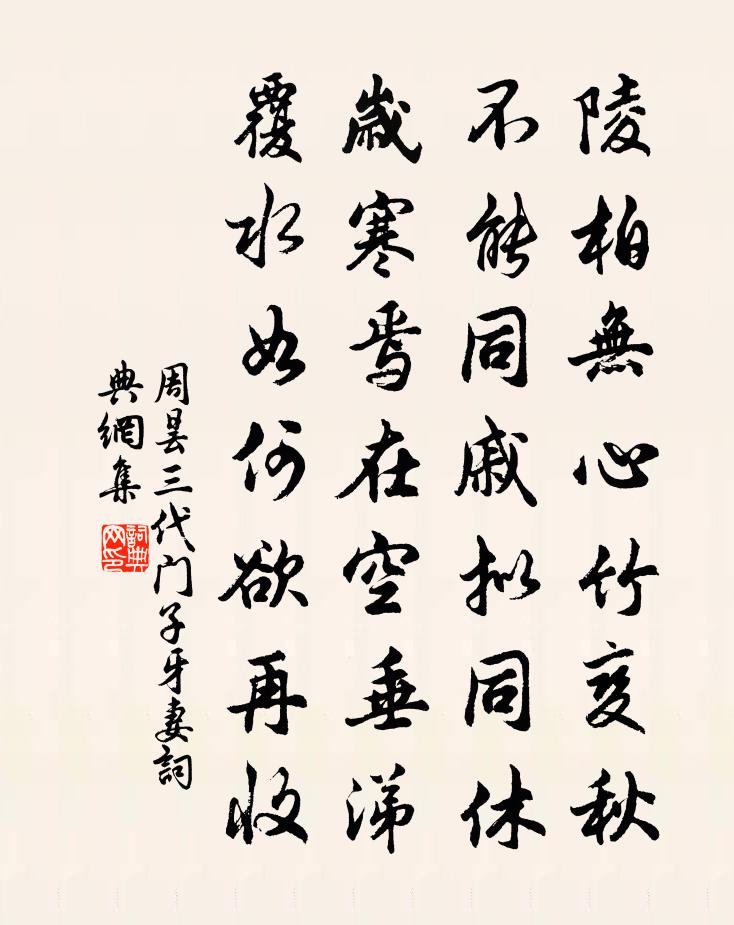 陵柏無心竹變秋
不能同戚擬同休
歲寒焉在空垂涕
覆水如何欲再收
周曇三代門子牙妻詞
典網集
詞典
网印